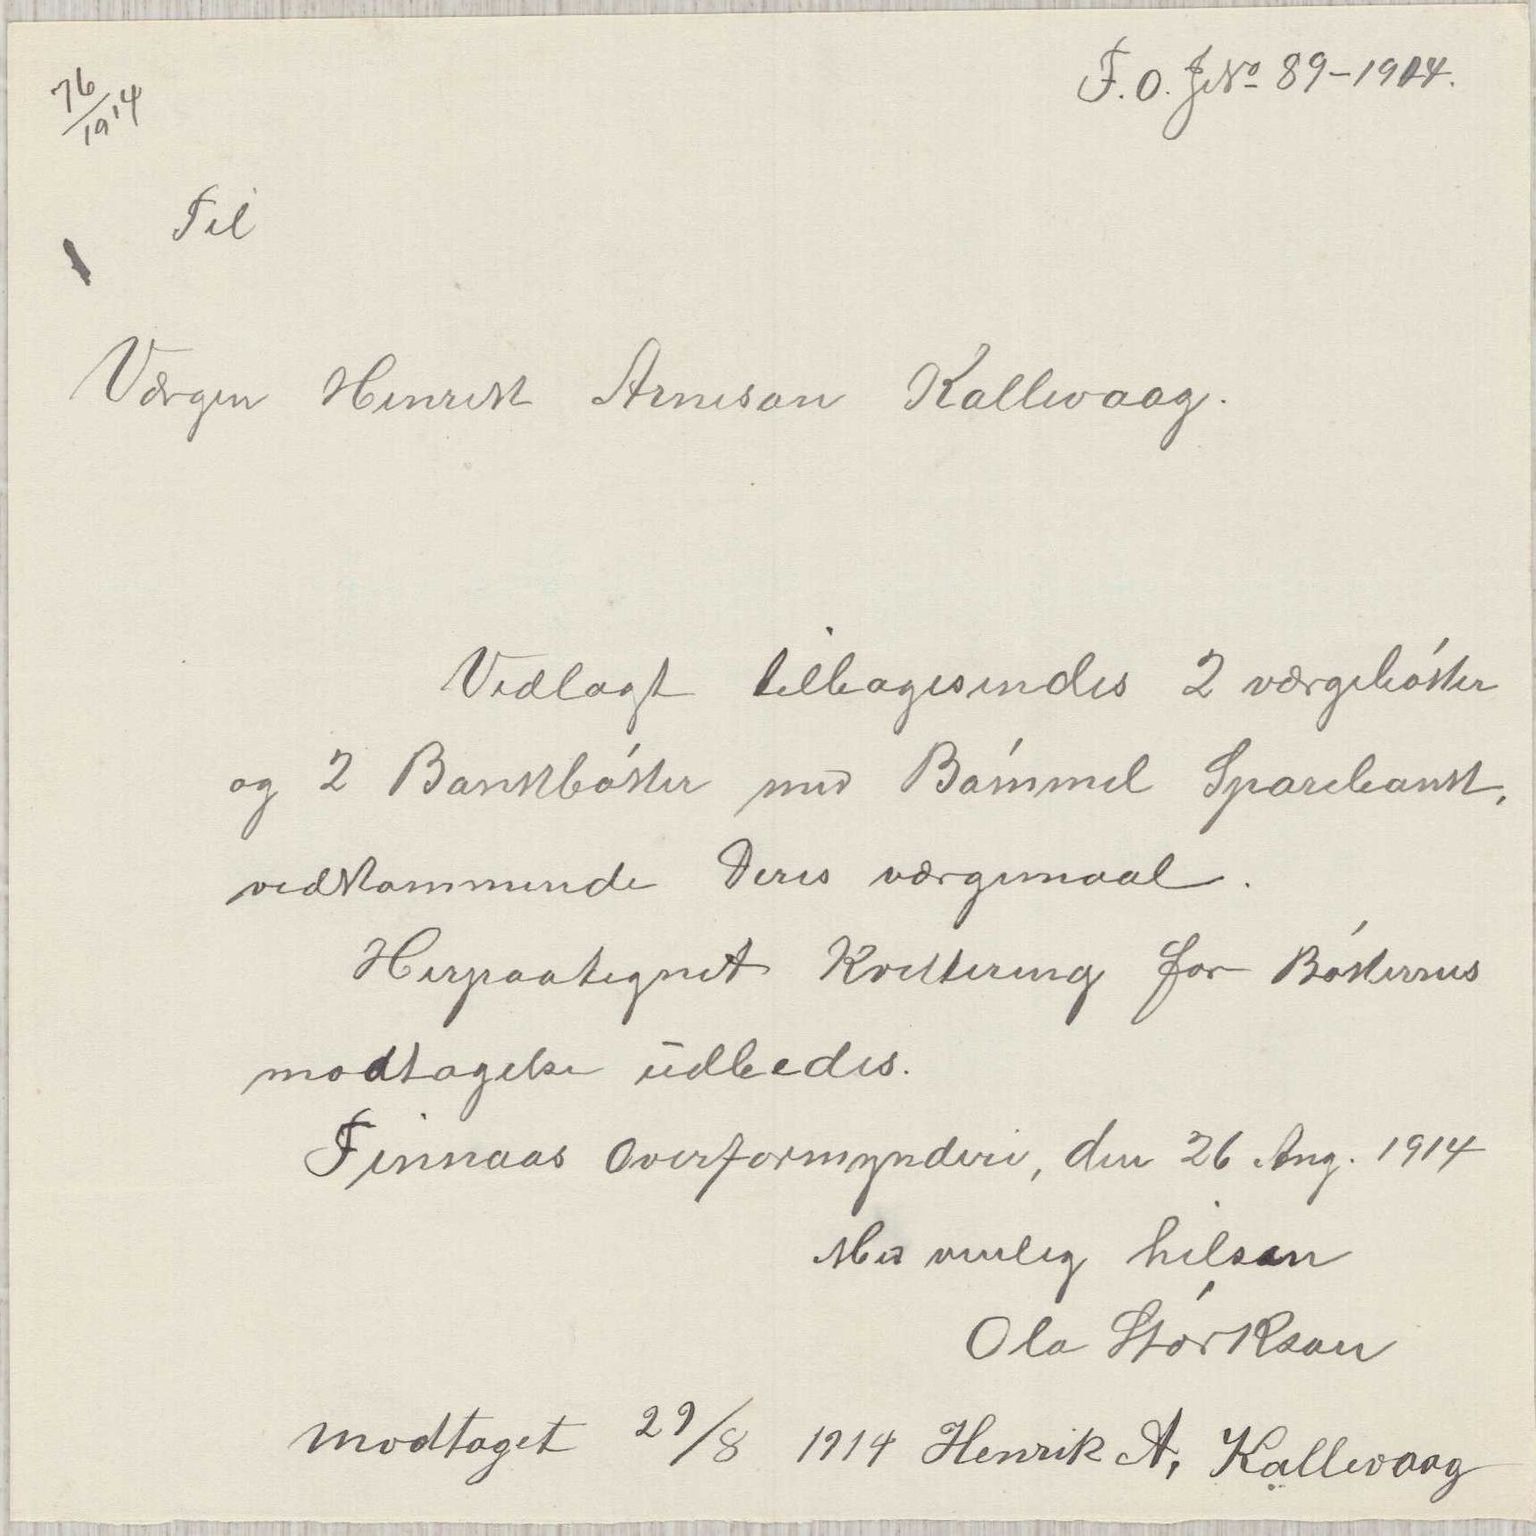 76/1914
F. O. J № 89-1914.
Til
Værgen Henrik Arneson Kallevaag.
Vedlagt tilbagesendes 2 værgebøker
og 2 Bankbøker med Bømmel Sparebank,
vedkommende Deres værgemaal.
Herpaategnet Kvittering for Bøkernes
modtagelse udbedes.
Finnaas Overformynderi, den 26 Aug. 1914
Med venlig hilsen
Ola Størkson
Modtaget 29/8 1914 Henrik A, Kallevaag